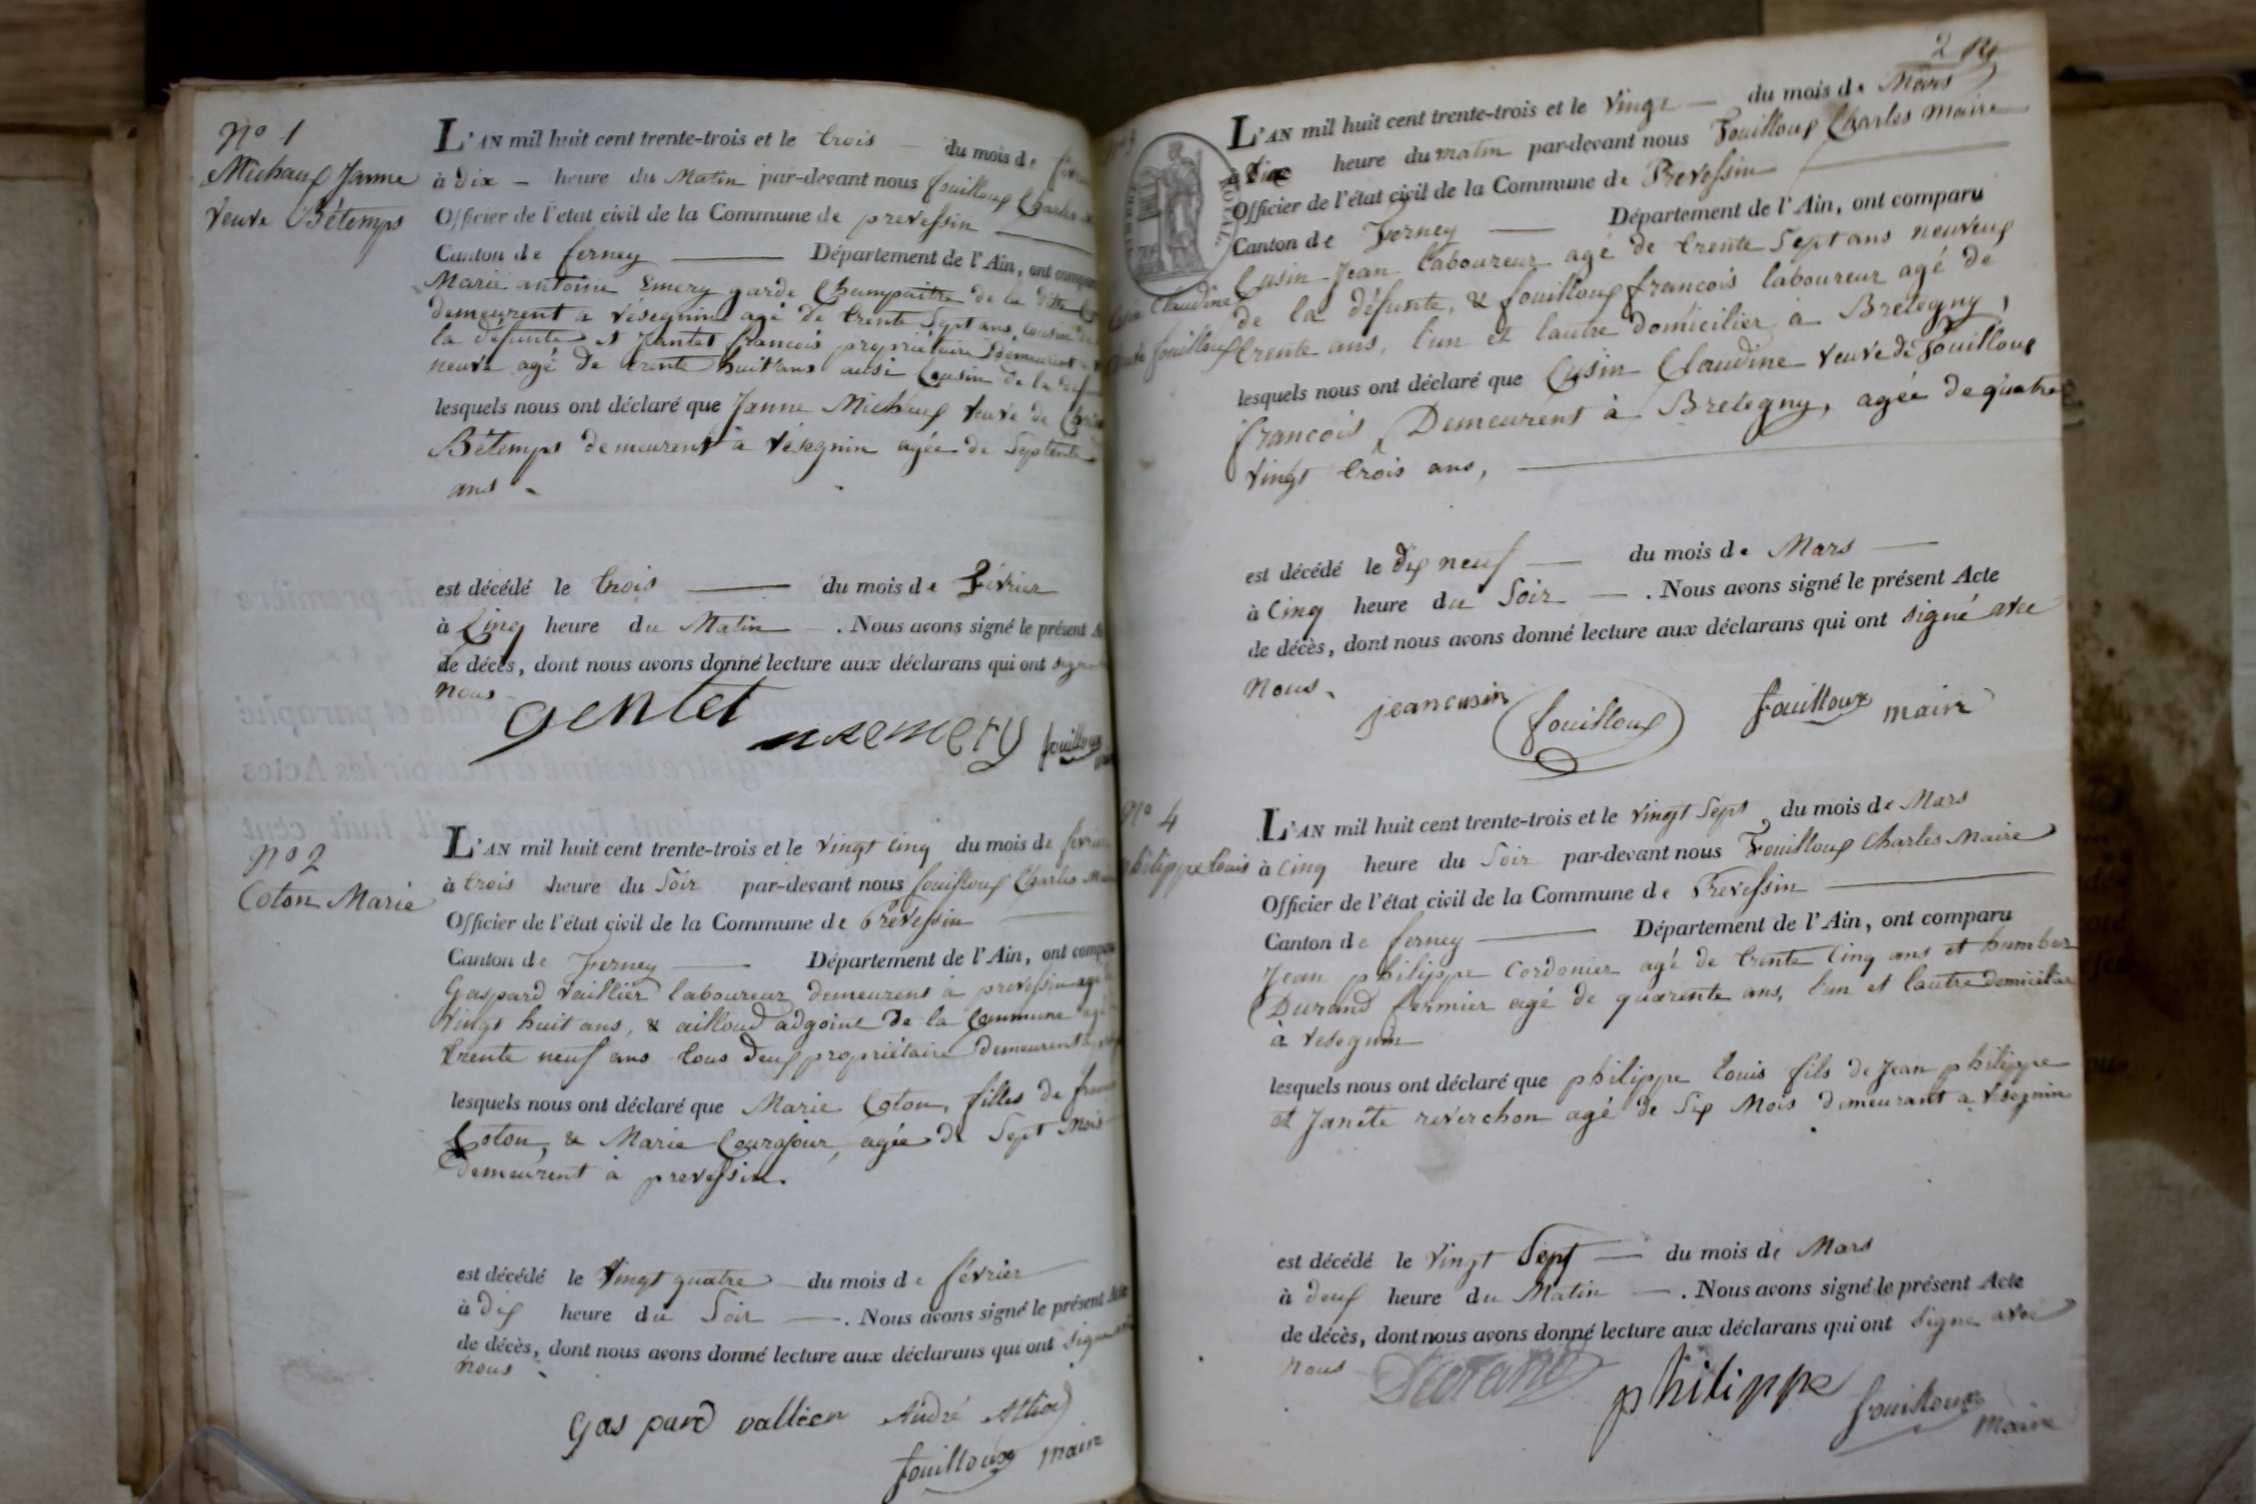 No 1
Michaux Janne
veuve Bétemps
L'AN mil huit cent trente-trois et le trois du mois de
à Dix heure du Matin par-devant nous fouilloux Charles
Officier de l'état civil de la Commune de prevessin
Canton de ferney Département de l'Ain, ont
Marie antoine Emery garde Champaitre de la dite
demeurent a Vésegnin agé de trente sept ans, cousin de
la défunte et francois propriétaire demeurent a
agé de trente huit ans ausi Cousin de la
lesquels nous ont déclaré que Janne Michaux veuve de
Bétemps demeurent a Vésegnin agée de Septente
ans
est décédé le trois du mois de Février
à Cinq heure du Matin . Nous avons signé le présent
de décès, dont nous avons donné lecture aux déclarans qui ont
nous
gentet
emery
fouilloux
No 2
Coton Marie
L'AN mil huit cent trente-trois et le vingt cinq du mois de
à trois heure du Soir par-devant nous fouilloux Charles
Officier de l'état civil de la Commune de Prevessin
Canton de Ferney Département de l'Ain, ont
Gaspard laboureur demeurens a prevessin
vingt huit ans, & ailloud adgoint de la Commune
trente neuf ans tous deux propriétaire demeurent
lesquels nous ont déclaré que Marie Coton, filles de
Coton, & Marie Courajour, agée de Sept Mois
demeurent a prevessin.
est décédé le Vingt quatre du mois de février
à dix heure du Soir . Nous avons signé le présent
de décès, dont nous avons donné lecture aux déclarans qui ont
nous
Gaspard André
fouilloux maire
2
L'AN mil huit cent trente-trois et le Vingt du mois de Mars
à Dix heure du matin par-devant nous Fouilloux Charles maire
Officier de l'état civil de la Commune de Prevessin
Canton de Ferney Département de l'Ain, ont comparu
Claudine
fouilloux
Cusin Jean laboureur agé de trente Sept ans neuveux
de la défunte, & fouilloux francois laboureur agé de
trente ans, l'un et lautre domicilier a Bretegny,
lesquels nous ont déclaré que Cusin Claudine veuve de Fouilloux
francois Demeurent à Bretegny, agée de quatre
vingt trois ans,
est décédé le dix neuf du mois de Mars
à Cinq heure du Soir . Nous avons signé le présent Acte
de décès, dont nous avons donné lecture aux déclarans qui ont signé avec
nous.
jean cusin fouilloux fouilloux maire
No 4
philippe louis
L'AN mil huit cent trente-trois et le vingt Sept du mois de Mars
à Cinq heure du Soir par-devant nous Fouilloux Charles Maire
Officier de l'état civil de la Commune de Prevessin
Canton de ferney Département de l'Ain, ont comparu
Jean philippe Cordonier agé de trente Cinq ans et
Durand fermier agé de quarente ans, l'un et lautre
à Vesegnin
lesquels nous ont déclaré que philippe louis fils de Jean philippe
et Janéte reverchon agé de Six Mois demeurant a Vesegnin
est décédé le Vingt Sept du mois de Mars
à deux heure du Matin . Nous avons signé le présent Acte
de décès, dont nous avons donné lecture aux déclarans qui ont signe avec
nous
Durand
philippe
fouilloux
maire